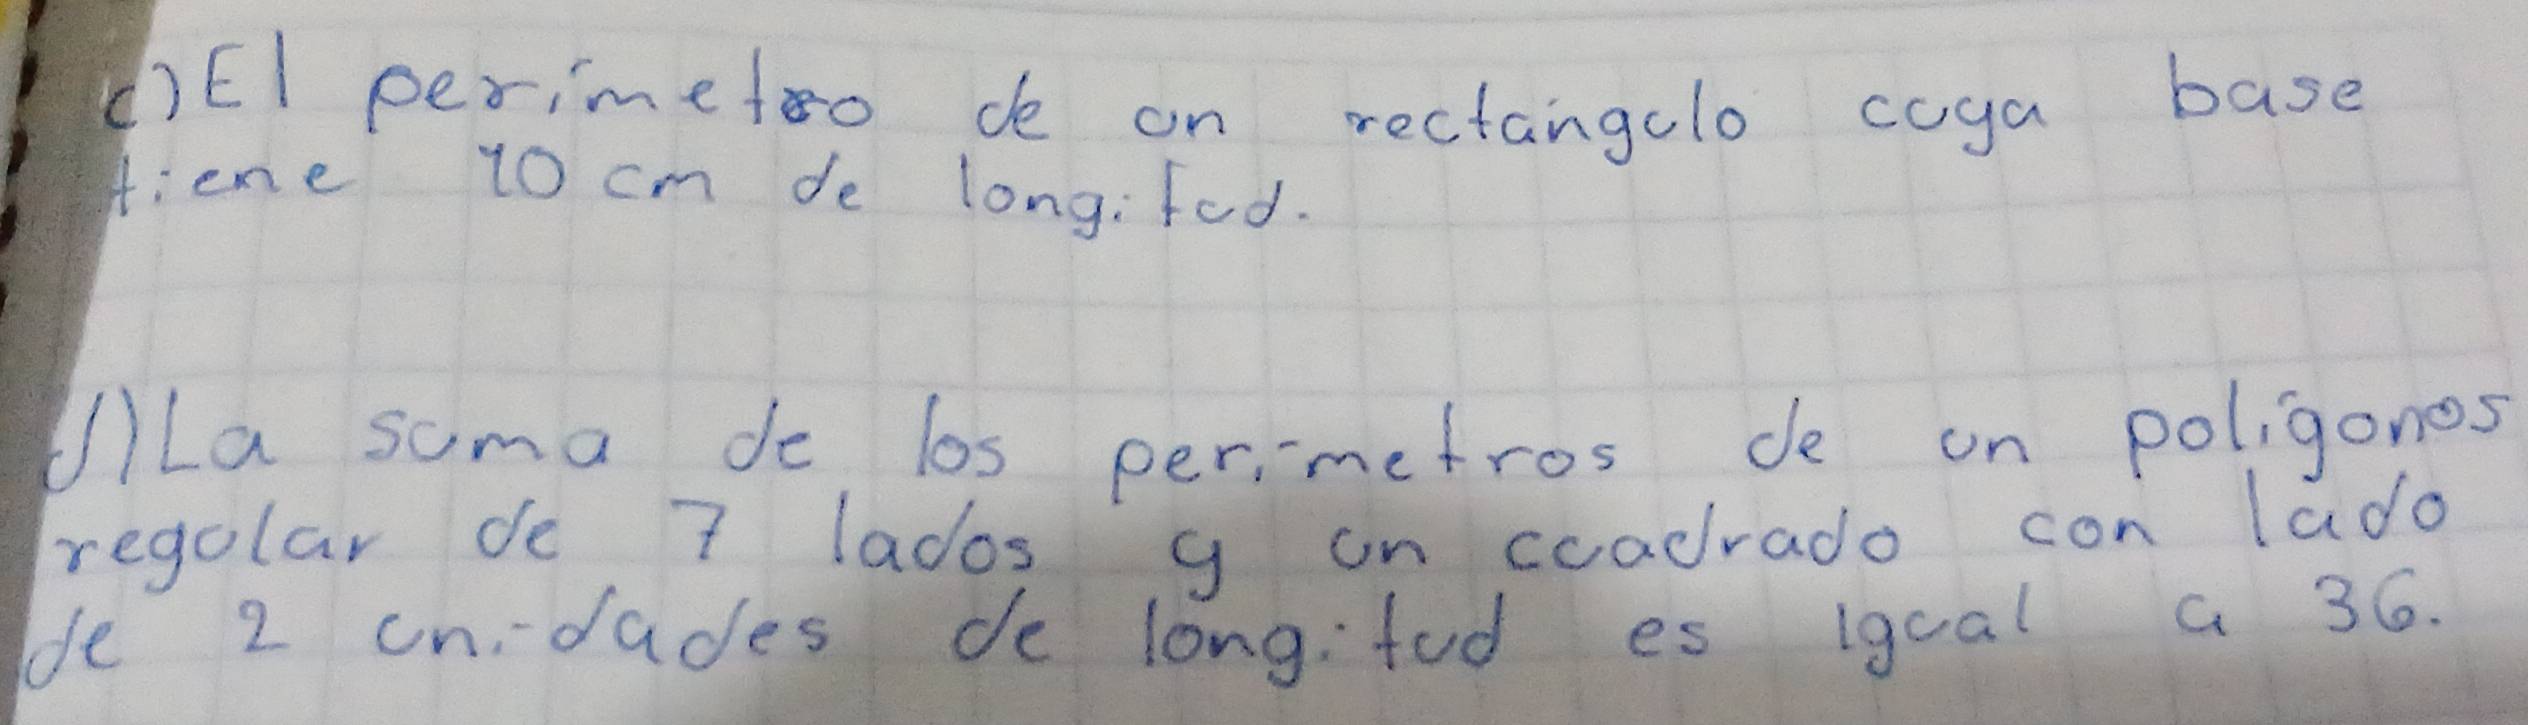 c) El perímetro de un rectángulo cuya base
tiene 10 cm de longitud.
d) La suma de los perímetros de un polígonos
regular de 7 lados y un cuadrado con lado
de 2 unidades de longitud es igual a 36.